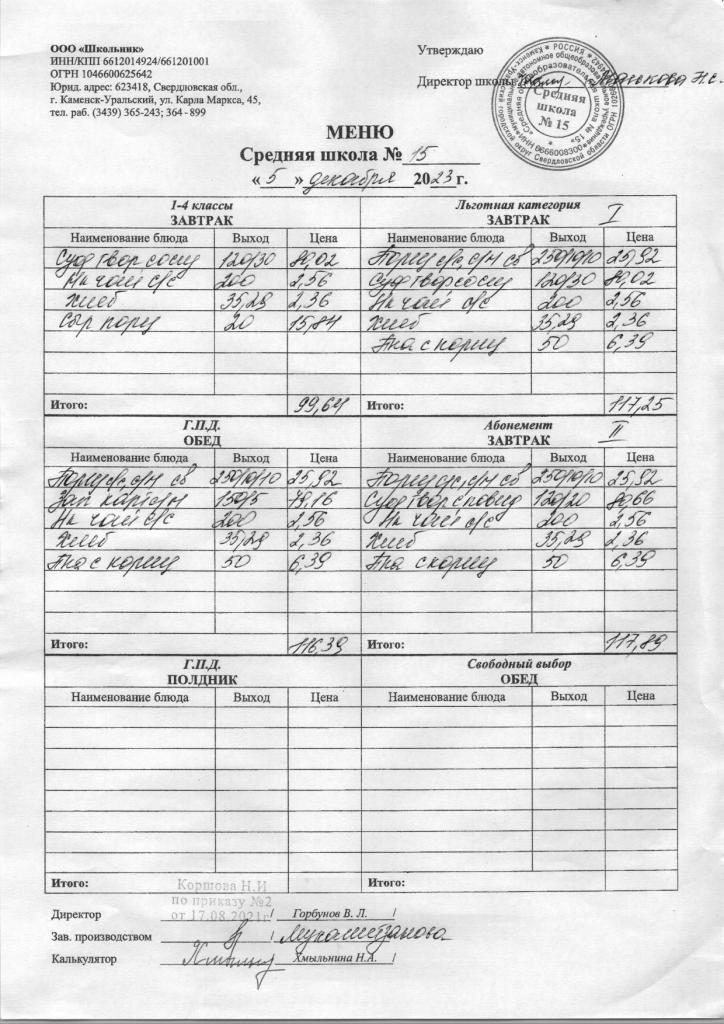 ООО «Школьник»
ИНН/КПП 6612014924/661201001
ОГРН 1046600625642
Юрид. адрес: 623418, Свердловская обл.,
г. Каменск-Уральский, ул. Карла Маркса, 45,
тел. раб. (3439) 365-243; 364 - 899
Утверждаю
Директор школы
Средняя
школа
№ 15
МЕНЮ
Средняя школа № 15
« 5 » декабря 2023г.
1-4 классы
ЗАВТРАК
Наименование блюда Выход Цена
Суф твор сосиц 120/30 80,02
Нк чай с/с 200 2,56
Хлеб 35,29 2,36
Сыр порц 20 15,84
Итого: 99,64
Льготная категория
ЗАВТРАК I
Наименование блюда Выход Цена
250/10/10 25,92
120/30 80,02
Нк чай с/с 200 2,56
Хлеб 35,29 2,36
с кориц 50 6,39
Итого: 117,25
Г.П.Д.
ОБЕД
Наименование блюда Выход Цена
250/10/10 25,92
Зап карт с/м 150/5 79,16
Нк чай с/с 200 2,56
Хлеб 35,29 2,36
с кориц 50 6,39
Итого: 116,39
Абонемент
ЗАВТРАК II
Наименование блюда Выход Цена
250/10/10 25,92
Суф твор с повид 120/20 80,66
Нк чай с/с 200 2,56
Хлеб 35,29 2,36
с кориц 50 6,39
Итого: 117,89
Г.П.Д.
ПОЛДНИК
Наименование блюда Выход Цена
Итого:
Свободный выбор
ОБЕД
Наименование блюда Выход Цена
Итого:
Коршова Н.И
по приказу №2
от 17.08.2021г
Директор / Горбунов В. Л. /
Зав. производством / Мухаметзянова
Калькулятор Хмыльнина Н.А. /